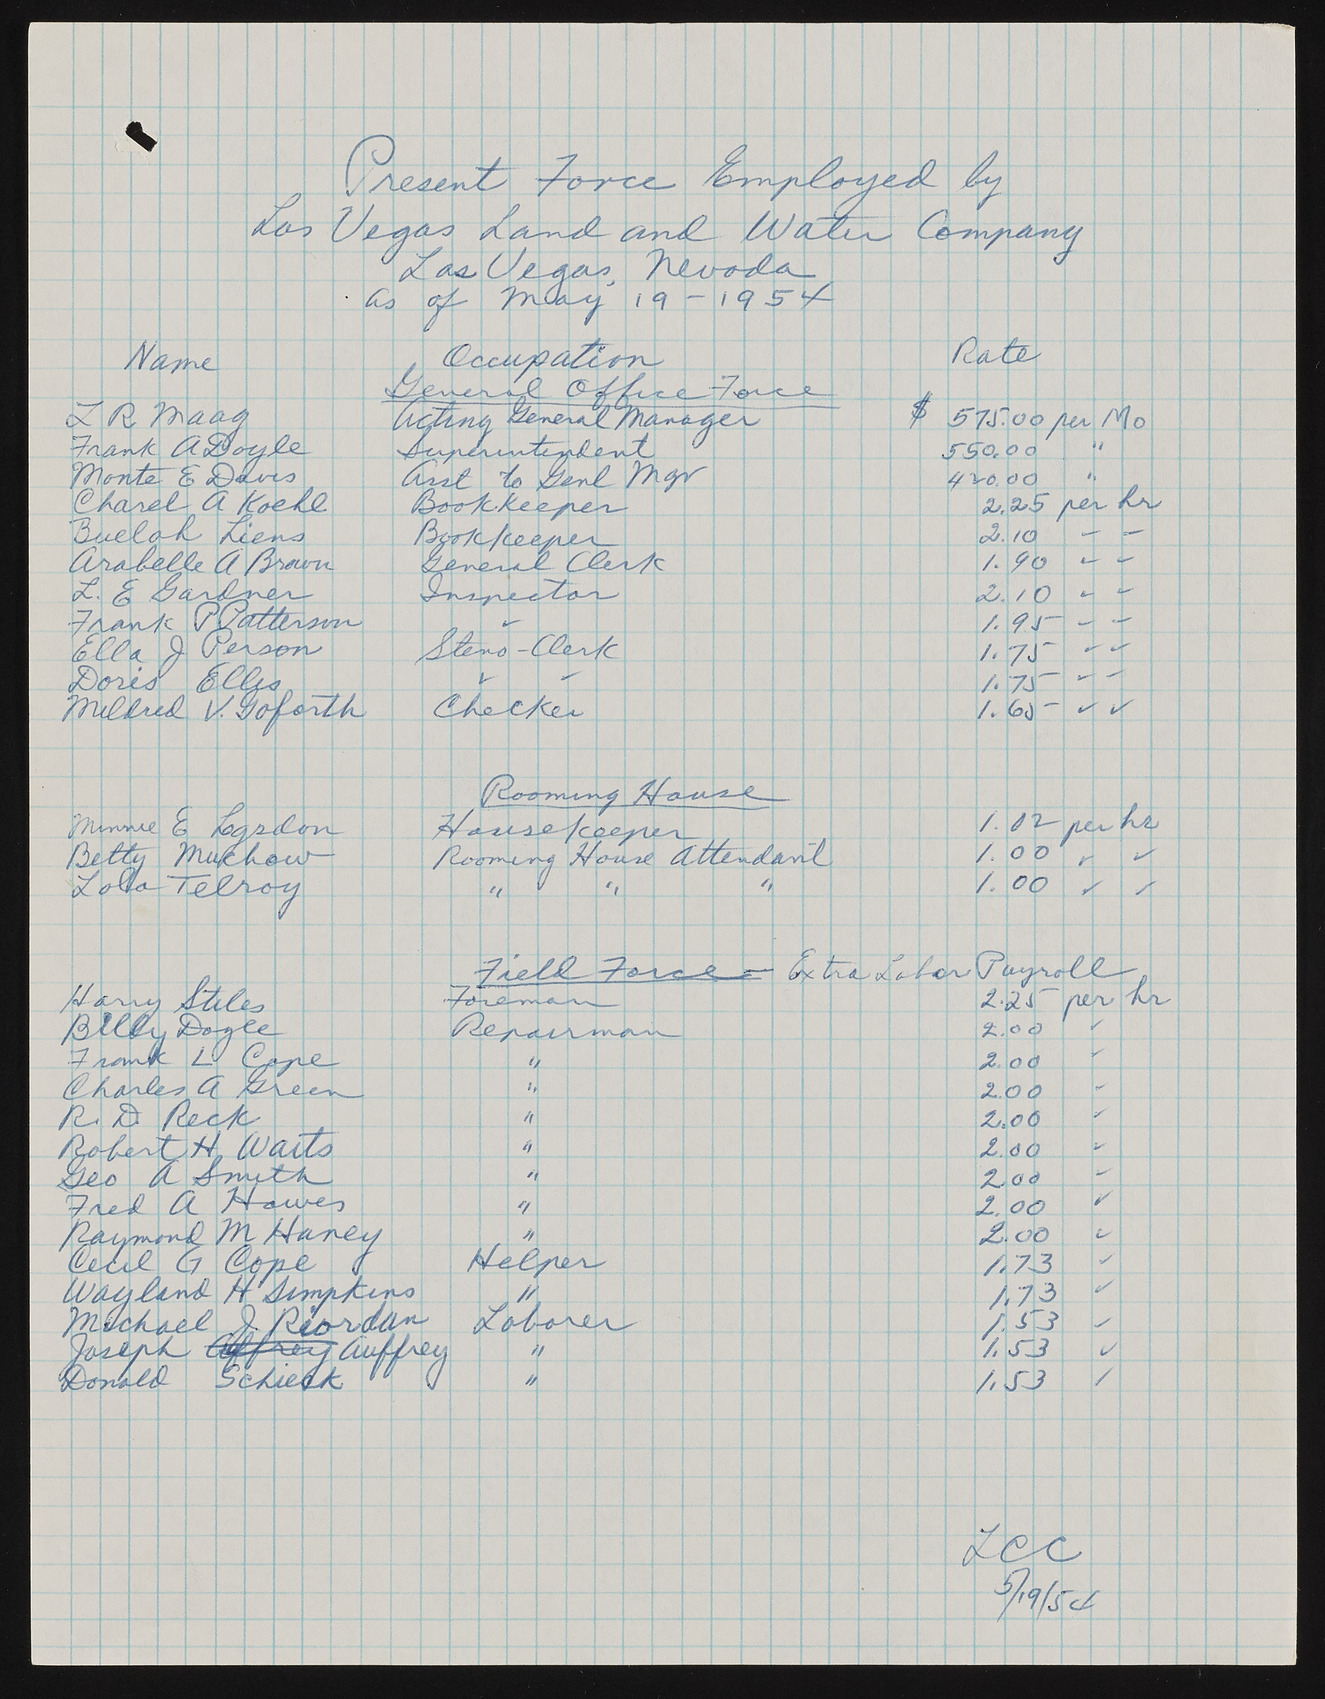 Present Force Employed by
Las Vegas Land and Water Company
Las Vegas, Nevada
as of May 19-1954
Name Occupation Rate
General Office Force
L R Maag Acting General Manager $ 575.00 per Mo
Frank A Doyle Superintendent 550.00 "
Monte E Davis Asst to Genl Mgr 420.00 "
Charel A Koehl Bookkeeper 2.25 per hr
Buelah Liens Bookkeeper 2.10 " "
Arabelle A Brown General Clerk 1.90 " "
L. E Gardner Inspector 2.10 " "
Frank P Patterson " 1.95 " "
Ella J Person Steno-Clerk 1.75 " "
Doris Ellis " " 1.75 " "
Mildred V. Goforth Checker 1.65 " "
Rooming House
Minnie E Logsdon Housekeeper 1.02 per hr
Betty Muchow Rooming House Attendant 1.00 " "
Lola Telroy " " " 1.00 " "
Field Force - Extra Labor Payroll
Harry Stiles Foreman 2.25 per hr
Billy Dogle Repairman 2.00 "
Frank L Cope " 2.00 "
Charles A Green " 2.00 "
R. D. Reck " 2.00 "
Robert H. Waits " 2.00 "
Geo A Smith " 2.00 "
Fred A Hawes " 2.00 "
Raymond M Haney " 2.00 "
Cecil G Cope Helper 1.73 "
Wayland H Simpkins " 1.73 "
Michael J. Riordan Laborer 1.53 "
Joseph Auffrey " 1.53 "
Donald Schieck " 1.53 "
LCC
5/19/54